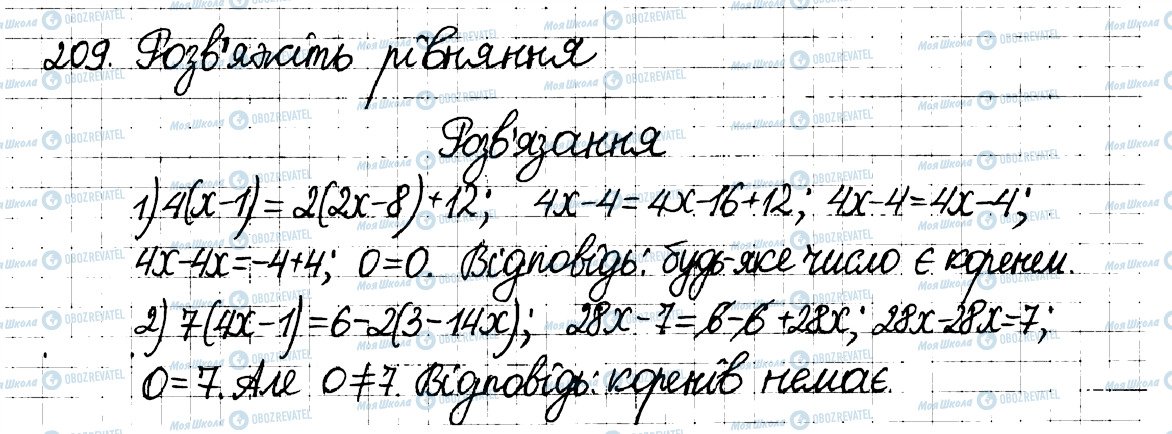 209. Розв'яжіть рівняння
Розв'язання
1) 4(x-1) = 2(2x-8)+12; 4x-4 = 4x-16+12; 4x-4=4x-4;
4x-4x=-4+4; 0=0. Відповідь: будь-яке число є коренем.
2) 7(4x-1)=6-2(3-14x); 28x-7=6-6+28x; 28x-28x=7;
0=7. Але 0≠7. Відповідь: коренів немає.